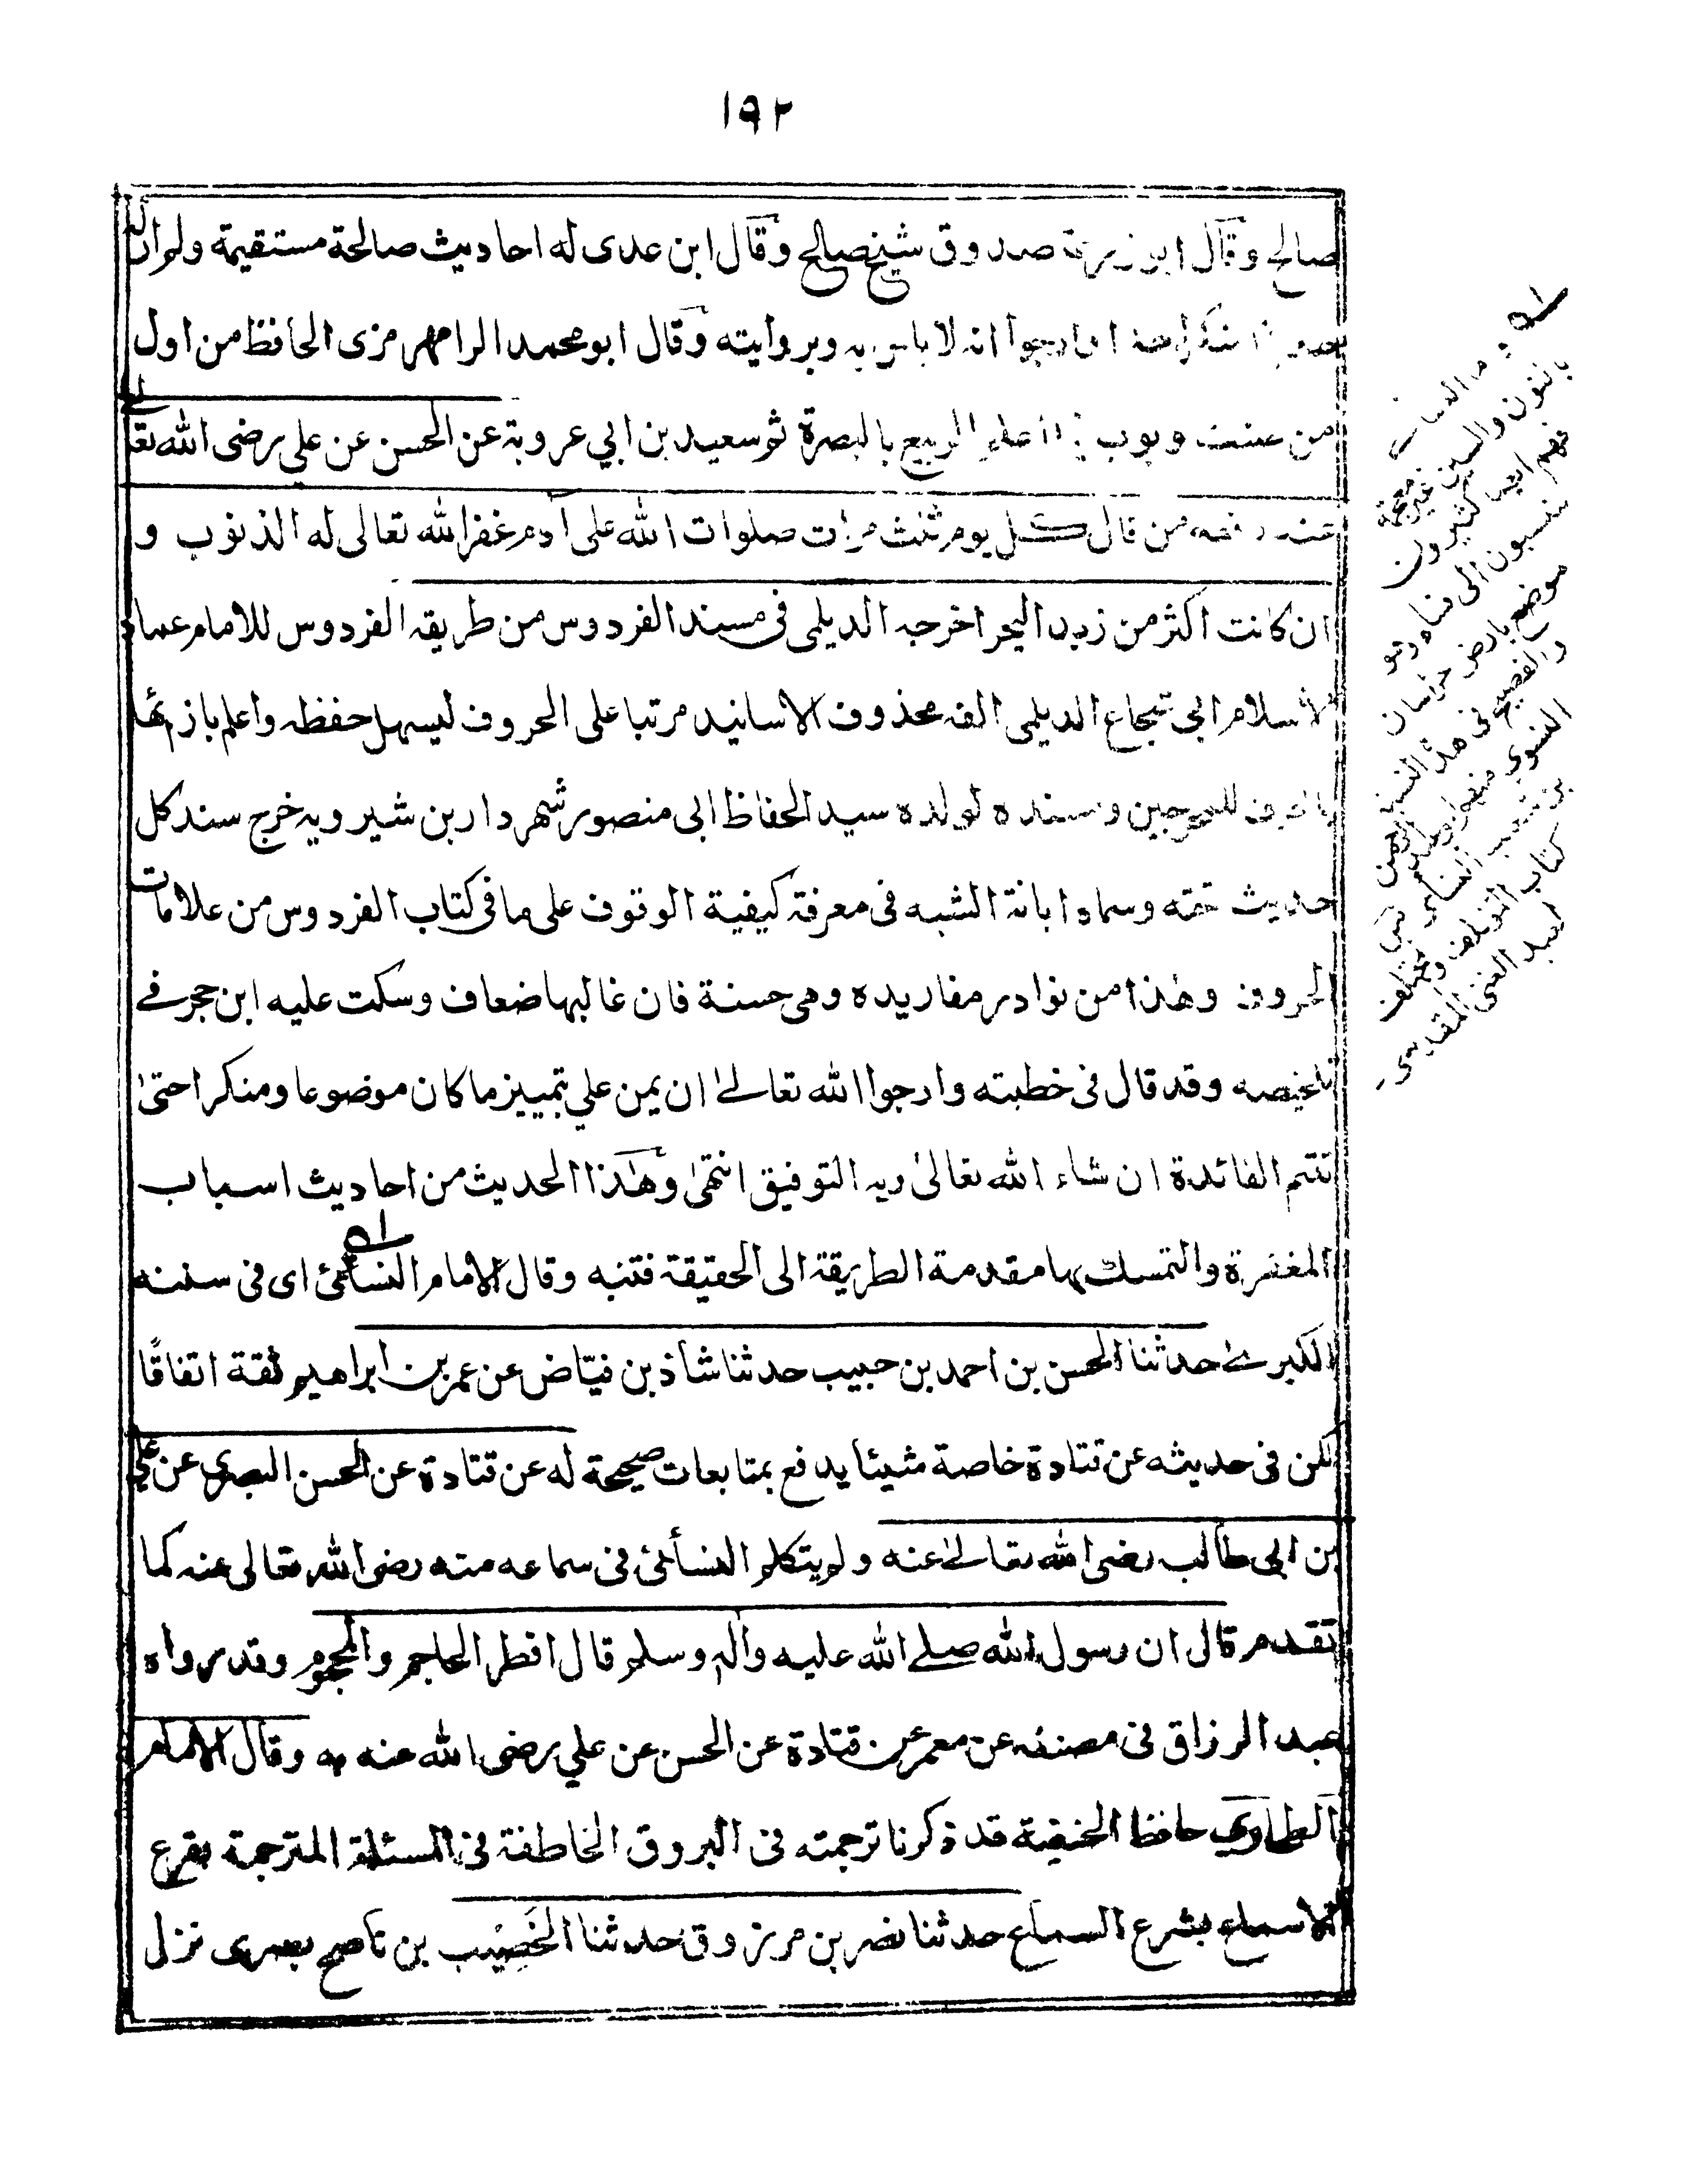 ١٩٢
صالح وقال ابو زرعة صدوق شيخ صالح وقال ابن عدى له احاديث صالحة مستقيمة ولم ار له
حديثا منكرا جدا وارجوا انه لا باس به وبروايته وقال ابو محمد الرامهرمزى الحافظ من اول
من صنف وبوب الربيع بالبصرة ثم سعيد بن ابي عروبة عن الحسن عن علي رضى الله تعالى
عنه رفعه من قال كل يوم ثلث مرات صلوات الله على آدم غفر الله تعالى له الذنوب و
ان كانت اكثر من زبد البحر اخرجه الديلمى فى مسند الفردوس من طريقه الفردوس للامام عماد
الاسلام ابى شجاع الديلمى الفه محذوف الاسانيد مرتبا على الحروف ليسهل حفظه واعلم بازائها
بالحروف للمخرجين ومسنده لولده سيد الحفاظ ابى منصور شهردار بن شيرويه خرج سند كل
حديث تحته وسماه ابانة الشبه فى معرفة كيفية الوقوف على ما فى كتاب الفردوس من علامات
الحروف وهذا من نوادر مفاريده وهى حسنة فان غالبها ضعاف وسكت عليه ابن حجر فے
تلخيصه وقد قال فى خطبته وارجوا الله تعالىٰ ان يمن علي بتمييز ما كان موضوعا ومنكرا حتىٰ
تتم الفائدة ان شاء الله تعالىٰ وبه التوفيق انتهىٰ وهذا الحديث من احاديث اسباب
المغفرة والتمسك بها مقدمة الطريقة الى الحقيقة فتنبه وقال الامام النسائى اى فى سننه
الكبرىٰ حدثنا الحسن بن احمد بن حبيب حدثنا شاذ بن فيّاض عن عمر بن ابراهيم ثقة اتفاقًا
لكن فى حديثه عن قتادة خاصة شيئا يدفع بمتابعات صحيحة له عن قتادة عن الحسن البصرى عن على
بن ابى طالب رضى الله تعالىٰ عنه ولم يتكلم النسائى فى سماعه منه رضى الله تعالى عنه كما
تقدم قال ان رسول الله صلے الله عليه وآله وسلم قال افطر الحاجم والمحجوم وقد رواه
عبد الرزاق فى مصنفه عن معمر عن قتادة عن الحسن عن علي رضى الله عنه به وقال الامام
الطحاوي حافظ الحنفية قد ذكرنا ترجمته فى البروق الخاطفة فى المسئلة المترجمة بقرع
الاسماع بشرع السماع حدثنا نصر بن مرزوق حدثنا الخَصِيب بن ناصح بصرى نزل
بالنون والسين غير معجمة
فهم ايضا كثيرون
ينسبون الى نساء وهو
موضع بارض خراسان
والفصيح فى هذه النسبة
النسوي منهم ابو عبد الرحمن
بن شعيب النسائى
كتاب المؤتلف والمختلف
لعبد الغنى المقدسى